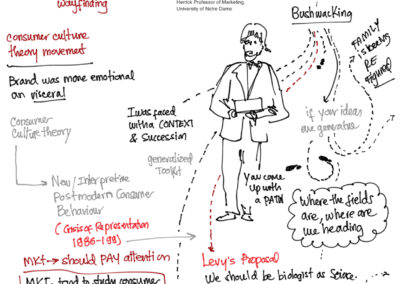 wayfinding
Herrick Professor of Marketing,
University of Notre Dame
Bushwacking
consumer culture
theory movement
Brand was more emotional
an visceral
Consumer
Culture theory
I was faced
with a CONTEXT
& Succession
generalized
Toolkit
FAMILY
RE
Figured
if your ideas
are generative
You came
up with
a PATH
New/Interpretive
Postmodern Consumer
Behaviour
(Crisis of Representation
MKT → should PAY attention
MKT → tried to study consumer
Where the fields
are, where are
we heading
Levy's Proposal
We should be biologist as Science.